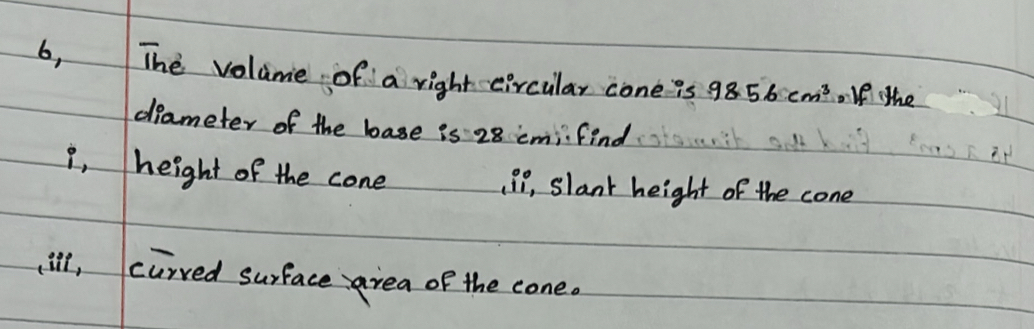 6, The volume of a right circular cone is 9856 cm³. If the
diameter of the base is 28 cm, find
i, height of the cone ii, slant height of the cone
iii, curved surface area of the cone.